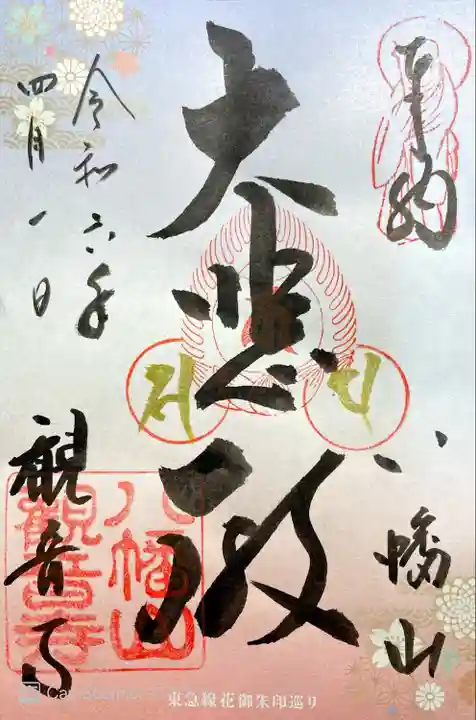 奉納
八幡山
大悲殿
令和六年
四月一日
観音寺
八幡山
観音寺
東急線花御朱印巡り